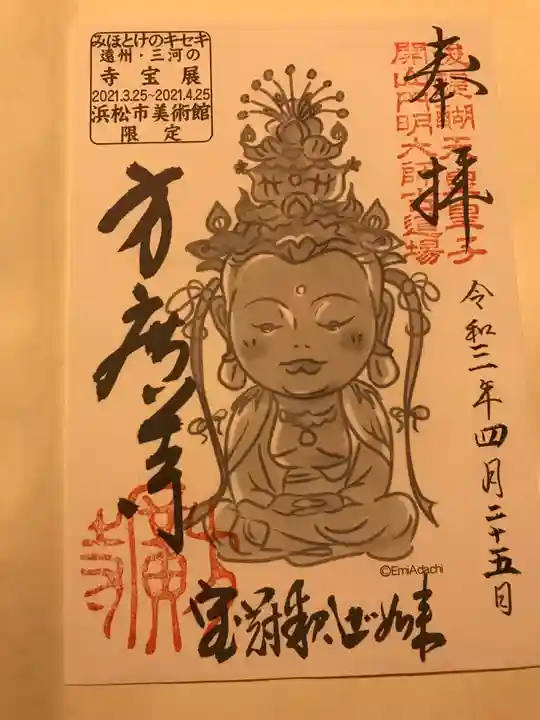 みほとけのキセキ
遠州・三河の
寺宝展
2021.3.25~2021.4.25
浜松市美術館
限定
奉拝
後醍醐天皇皇子
開山円明大師古道場
令和三年四月二十五日
方廣寺
宝冠釈迦如来
©EmiAdachi